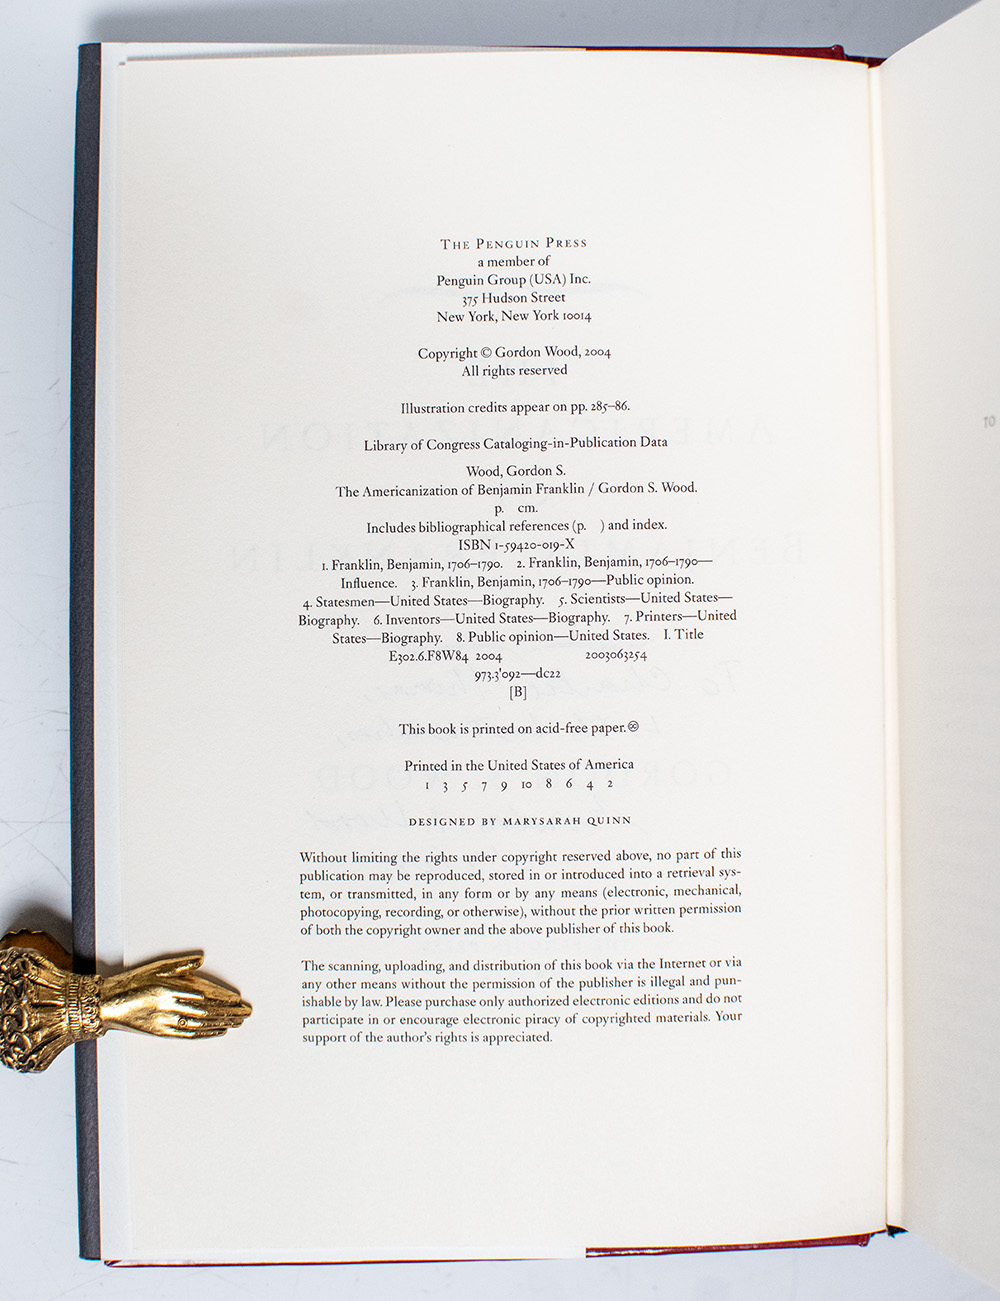 The Penguin Press
a member of
Penguin Group (USA) Inc.
375 Hudson Street
New York, New York 10014
Copyright © Gordon Wood, 2004
All rights reserved
Illustration credits appear on pp. 285–86.
Library of Congress Cataloging-in-Publication Data
Wood, Gordon S.
The Americanization of Benjamin Franklin / Gordon S. Wood.
p. cm.
Includes bibliographical references (p. ) and index.
ISBN 1-59420-019-X
1. Franklin, Benjamin, 1706–1790. 2. Franklin, Benjamin, 1706–1790—
Influence. 3. Franklin, Benjamin, 1706–1790—Public opinion.
4. Statesmen—United States—Biography. 5. Scientists—United States—
Biography. 6. Inventors—United States—Biography. 7. Printers—United
States—Biography. 8. Public opinion—United States. I. Title
E302.6.F8W84 2004 2003063254
973.3'092—dc22
[B]
This book is printed on acid-free paper. ♾
Printed in the United States of America
1 3 5 7 9 10 8 6 4 2
DESIGNED BY MARYSARAH QUINN
Without limiting the rights under copyright reserved above, no part of this
publication may be reproduced, stored in or introduced into a retrieval sys-
tem, or transmitted, in any form or by any means (electronic, mechanical,
photocopying, recording, or otherwise), without the prior written permission
of both the copyright owner and the above publisher of this book.
The scanning, uploading, and distribution of this book via the Internet or via
any other means without the permission of the publisher is illegal and pun-
ishable by law. Please purchase only authorized electronic editions and do not
participate in or encourage electronic piracy of copyrighted materials. Your
support of the author's rights is appreciated.